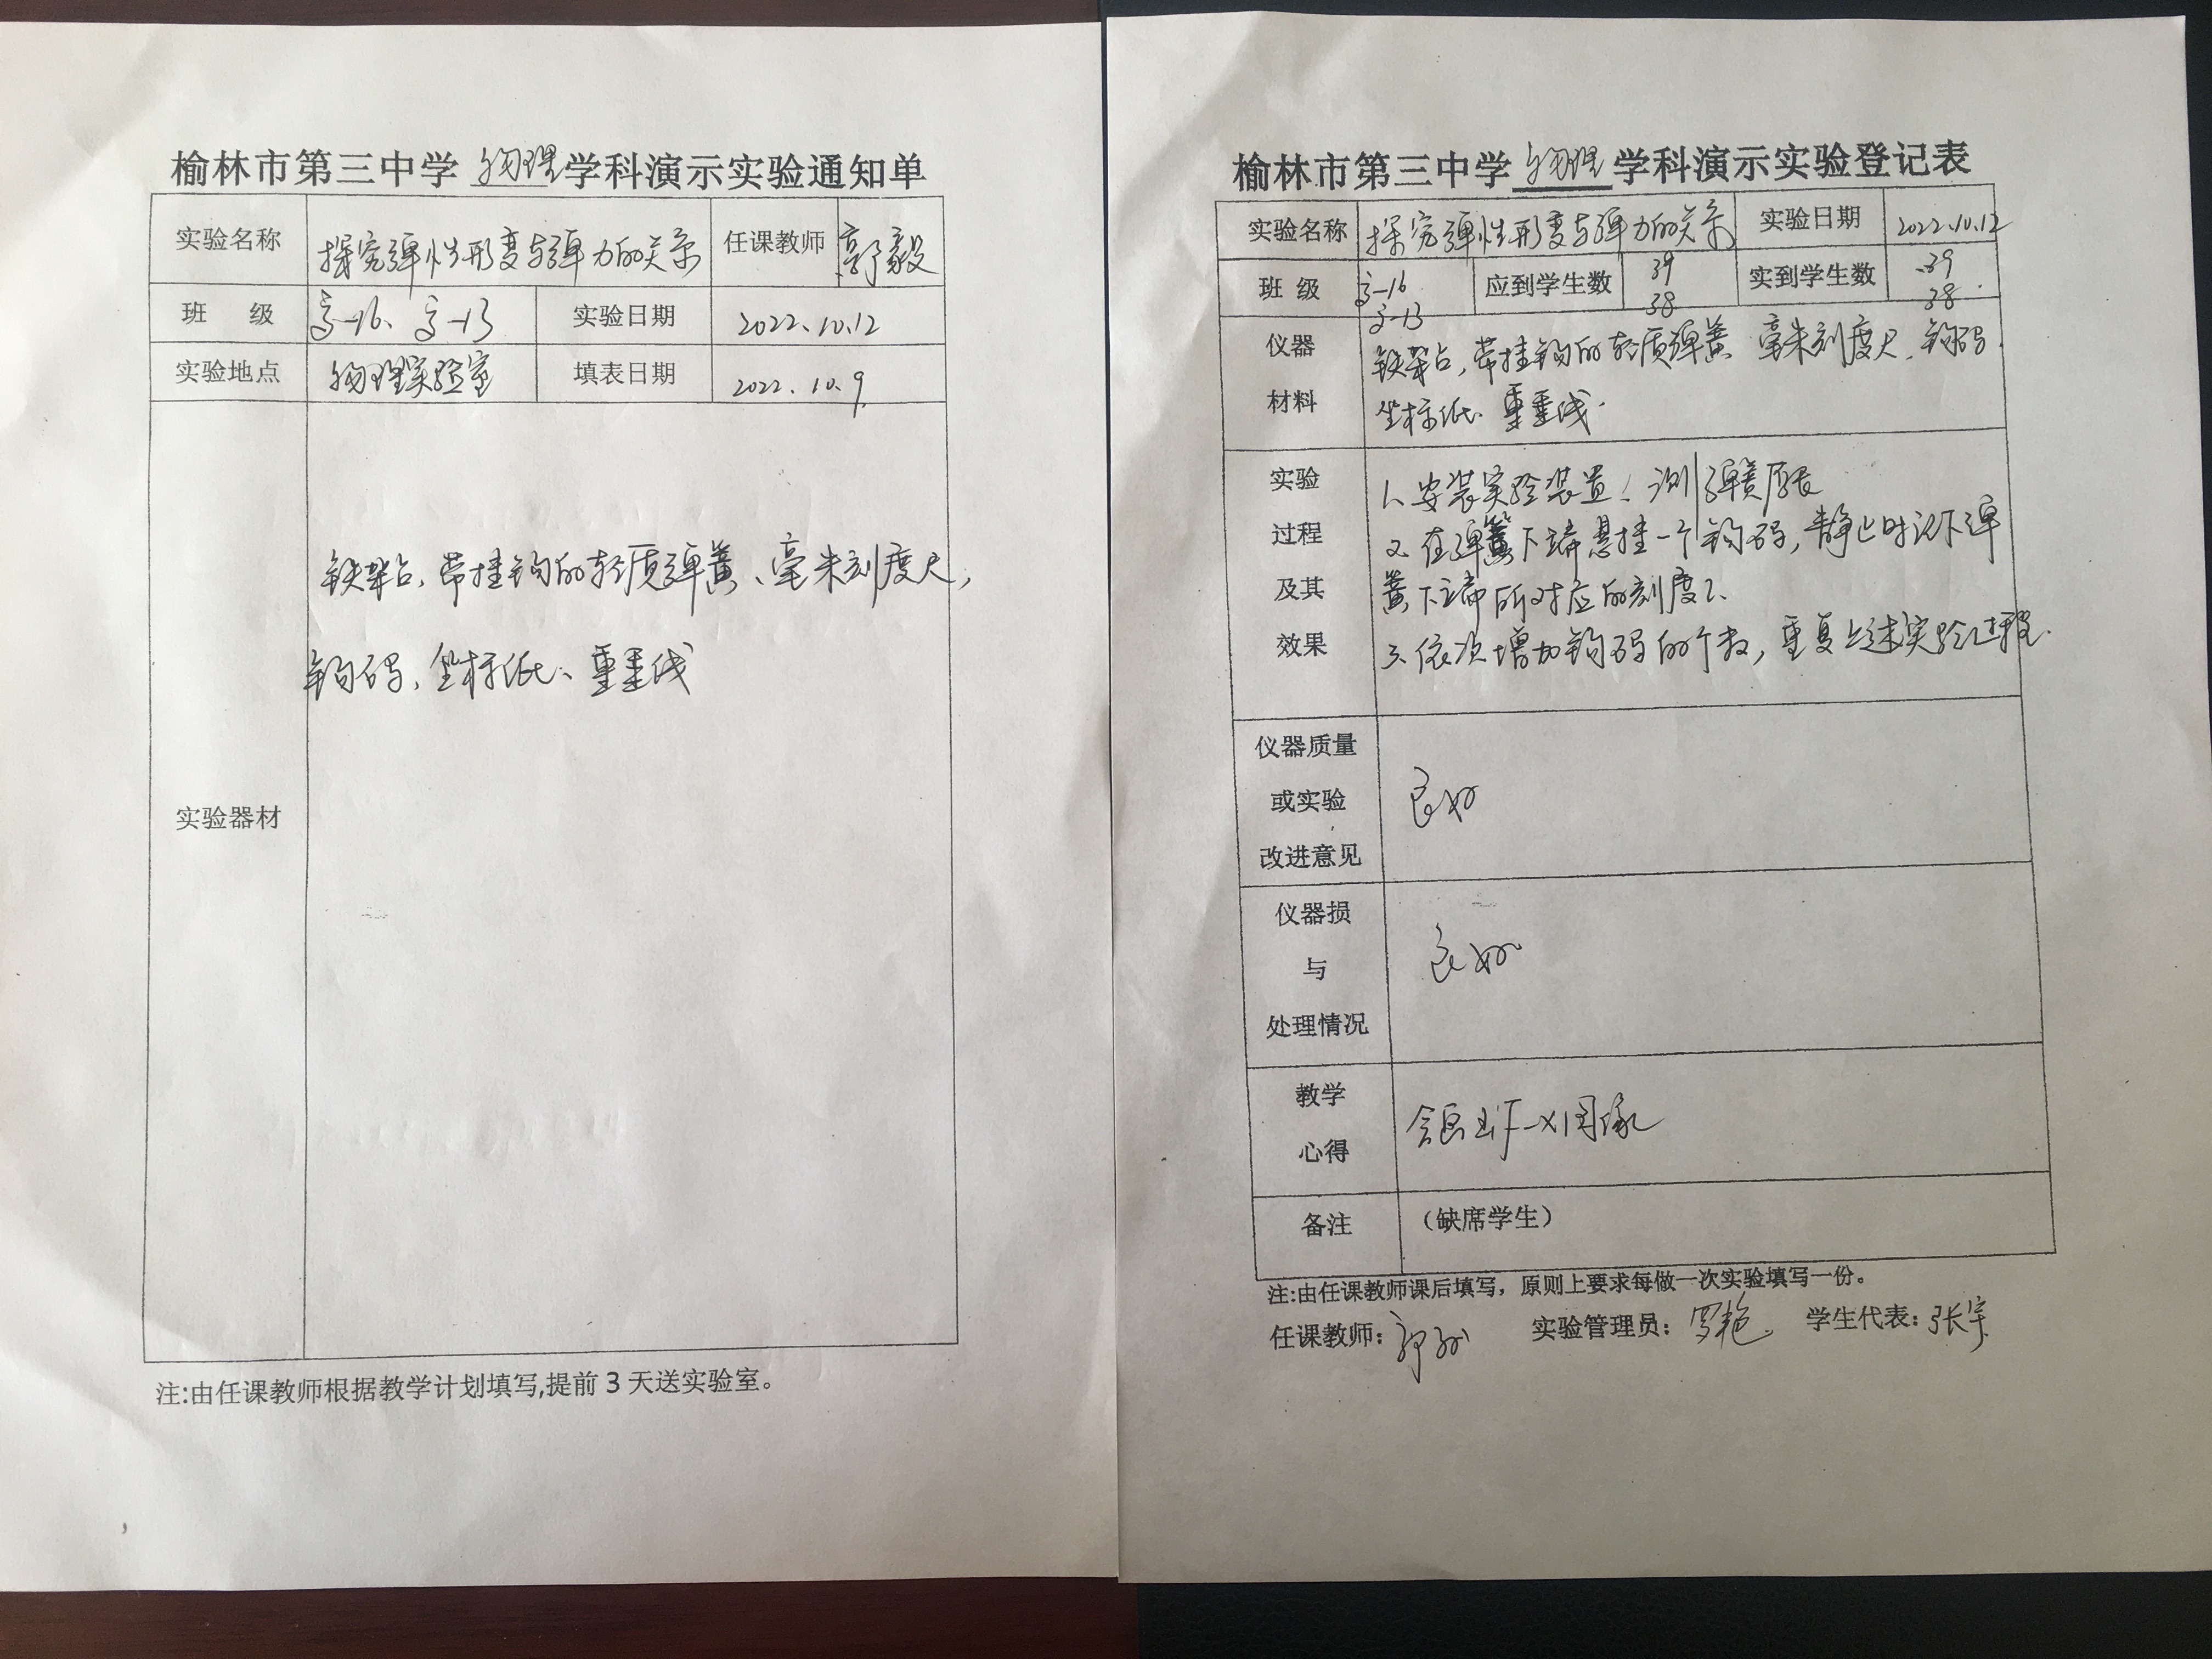 榆林市第三中学 物理 学科演示实验通知单
实验名称 探究弹性形变与弹力的关系 任课教师 郭毅
班 级 高一16、高一13 实验日期 2022.10.12
实验地点 物理实验室 填表日期 2022.10.9
实验器材
铁架台,带挂钩的轻质弹簧、毫米刻度尺,
钩码,坐标纸、重垂线
注:由任课教师根据教学计划填写,提前 3 天送实验室。
榆林市第三中学 物理 学科演示实验登记表
实验名称 探究弹性形变与弹力的关系 实验日期 2022.10.12
班 级 高一16 应到学生数 39 实到学生数 39
高一13 38 38
仪器
材料
铁架台,带挂钩的轻质弹簧 毫米刻度尺、钩码、
坐标纸、重垂线.
实验
过程
及其
效果
1、安装实验装置、测弹簧原长
2、在弹簧下端悬挂一个钩码,静止时记下弹
簧下端所对应的刻度L、
3、依次增加钩码的个数,重复上述实验过程.
仪器质量
或实验
改进意见
良好
仪器损
与
处理情况
良好
教学
心得
会画出F-x图像
备注 (缺席学生)
注:由任课教师课后填写,原则上要求每做一次实验填写一份。
任课教师: 郭毅 实验管理员: 罗艳 学生代表: 张宇